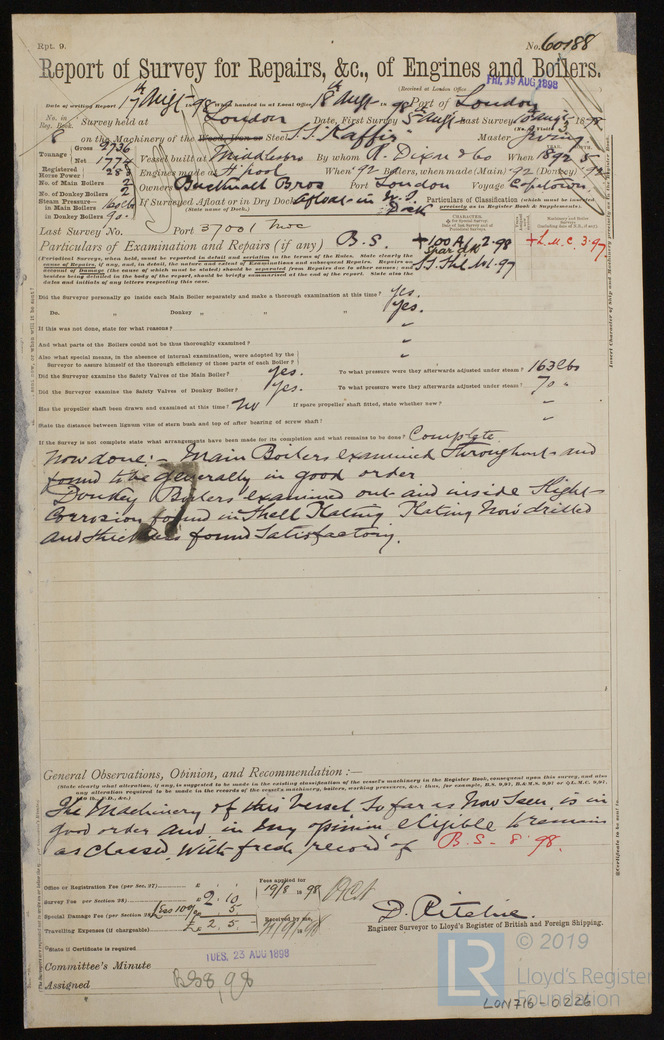 Rpt. 9.
No. 60188
Report of Survey for Repairs, &c., of Engines and Boilers.
(Received at London Office FRI. 19 AUG 1898
Date of writing Report 17th Augt 1898 When handed in at Local Office 18th Augt 1898 Port of London
No. in Reg. Book. Survey held at London Date, First Survey 5 Augt Last Survey 1898
8 on the Machinery of the Wood, Iron or Steel S.S. "Kaffir" Master Irving
Tonnage Gross 2736 Net 1774 Vessel built at Middlesbro By whom R. Dixon & Co When 1892 5
Registered Horse Power 288 Engines made at H'pool When '92 Boilers, when made (Main) '92 (Donkey) '92
No. of Main Boilers 2
No. of Donkey Boilers 2 Owners Bucknall Bros Port London Voyage Capetown
Steam Pressure— in Main Boilers 160 lbs If Surveyed Afloat or in Dry Dock Afloat in Dock
(State name of Dock.)
in Donkey Boilers 90
Particulars of Classification (which must be inserted precisely as in Register Book & Supplements).
Last Survey No. Port 37001
Particulars of Examination and Repairs (if any) B.S. +100 A1 2.98 +L.M.C. 3.97
(Periodical Surveys, when held, must be reported in detail and seriatim in the terms of the Rules. State clearly the
cause of Repairs, if any, and, in detail, the nature and extent of Examinations and subsequent Repairs. Repairs on
account of Damage (the cause of which must be stated) should be separated from Repairs due to other causes; and
besides being detailed in the body of the report, should be briefly summarized at the end of the report. State also the
dates and initials of any letters respecting this case.
Did the Surveyor personally go inside each Main Boiler separately and make a thorough examination at this time? Yes.
Do. „ Donkey „ „ „ Yes.
If this was not done, state for what reasons? "
And what parts of the Boilers could not be thus thoroughly examined? "
Also what special means, in the absence of internal examination, were adopted by the
Surveyor to assure himself of the thorough efficiency of those parts of each Boiler? "
Did the Surveyor examine the Safety Valves of the Main Boiler? Yes. To what pressure were they afterwards adjusted under steam? 163 lbs
Did the Surveyor examine the Safety Valves of Donkey Boiler? Yes. To what pressure were they afterwards adjusted under steam? 70 "
Has the propeller shaft been drawn and examined at this time? No If spare propeller shaft fitted, state whether new? "
State the distance between lignum vitæ of stern bush and top of after bearing of screw shaft? "
If the Survey is not complete state what arrangements have been made for its completion and what remains to be done? Complete.
Now done:- Main Boilers examined throughout and
found to be generally in good order
Donkey Boilers examined out and inside Slight
Corrosion found in Shell Plating Plating now drilled
and thickness found Satisfactory.
General Observations, Opinion, and Recommendation:—
(State clearly what alteration, if any, is suggested to be made in the existing classification of the vessel's machinery in the Register Book, consequent upon this survey, and also
any alteration required to be made in the records of the vessel's machinery, boilers, working pressures, &c.: thus, for example, B.S. 9.97, B.&M.S. 9.97 or L.M.C. 9.97,
The Machinery of this Vessel So far as Now Seen, is in
good order and in my opinion eligible to remain
as Classed, with fresh record of B.S. 8.98.
Office or Registration Fee (per Sec. 27) £
Survey Fee (per Section 28) £ 2.10
Special Damage Fee (per Section 28) Less 10% 5
Travelling Expenses (if chargeable) £ 2. 5.
Fees applied for
19/8 1898
Received by me,
D. Ritchie.
Engineer Surveyor to Lloyd's Register of British and Foreign Shipping.
State if Certificate is required
TUES. 23 AUG 1898
Committee's Minute
Assigned BS 8,98
© 2019
LR
Lloyd's Register
Foundation
LON716-0226